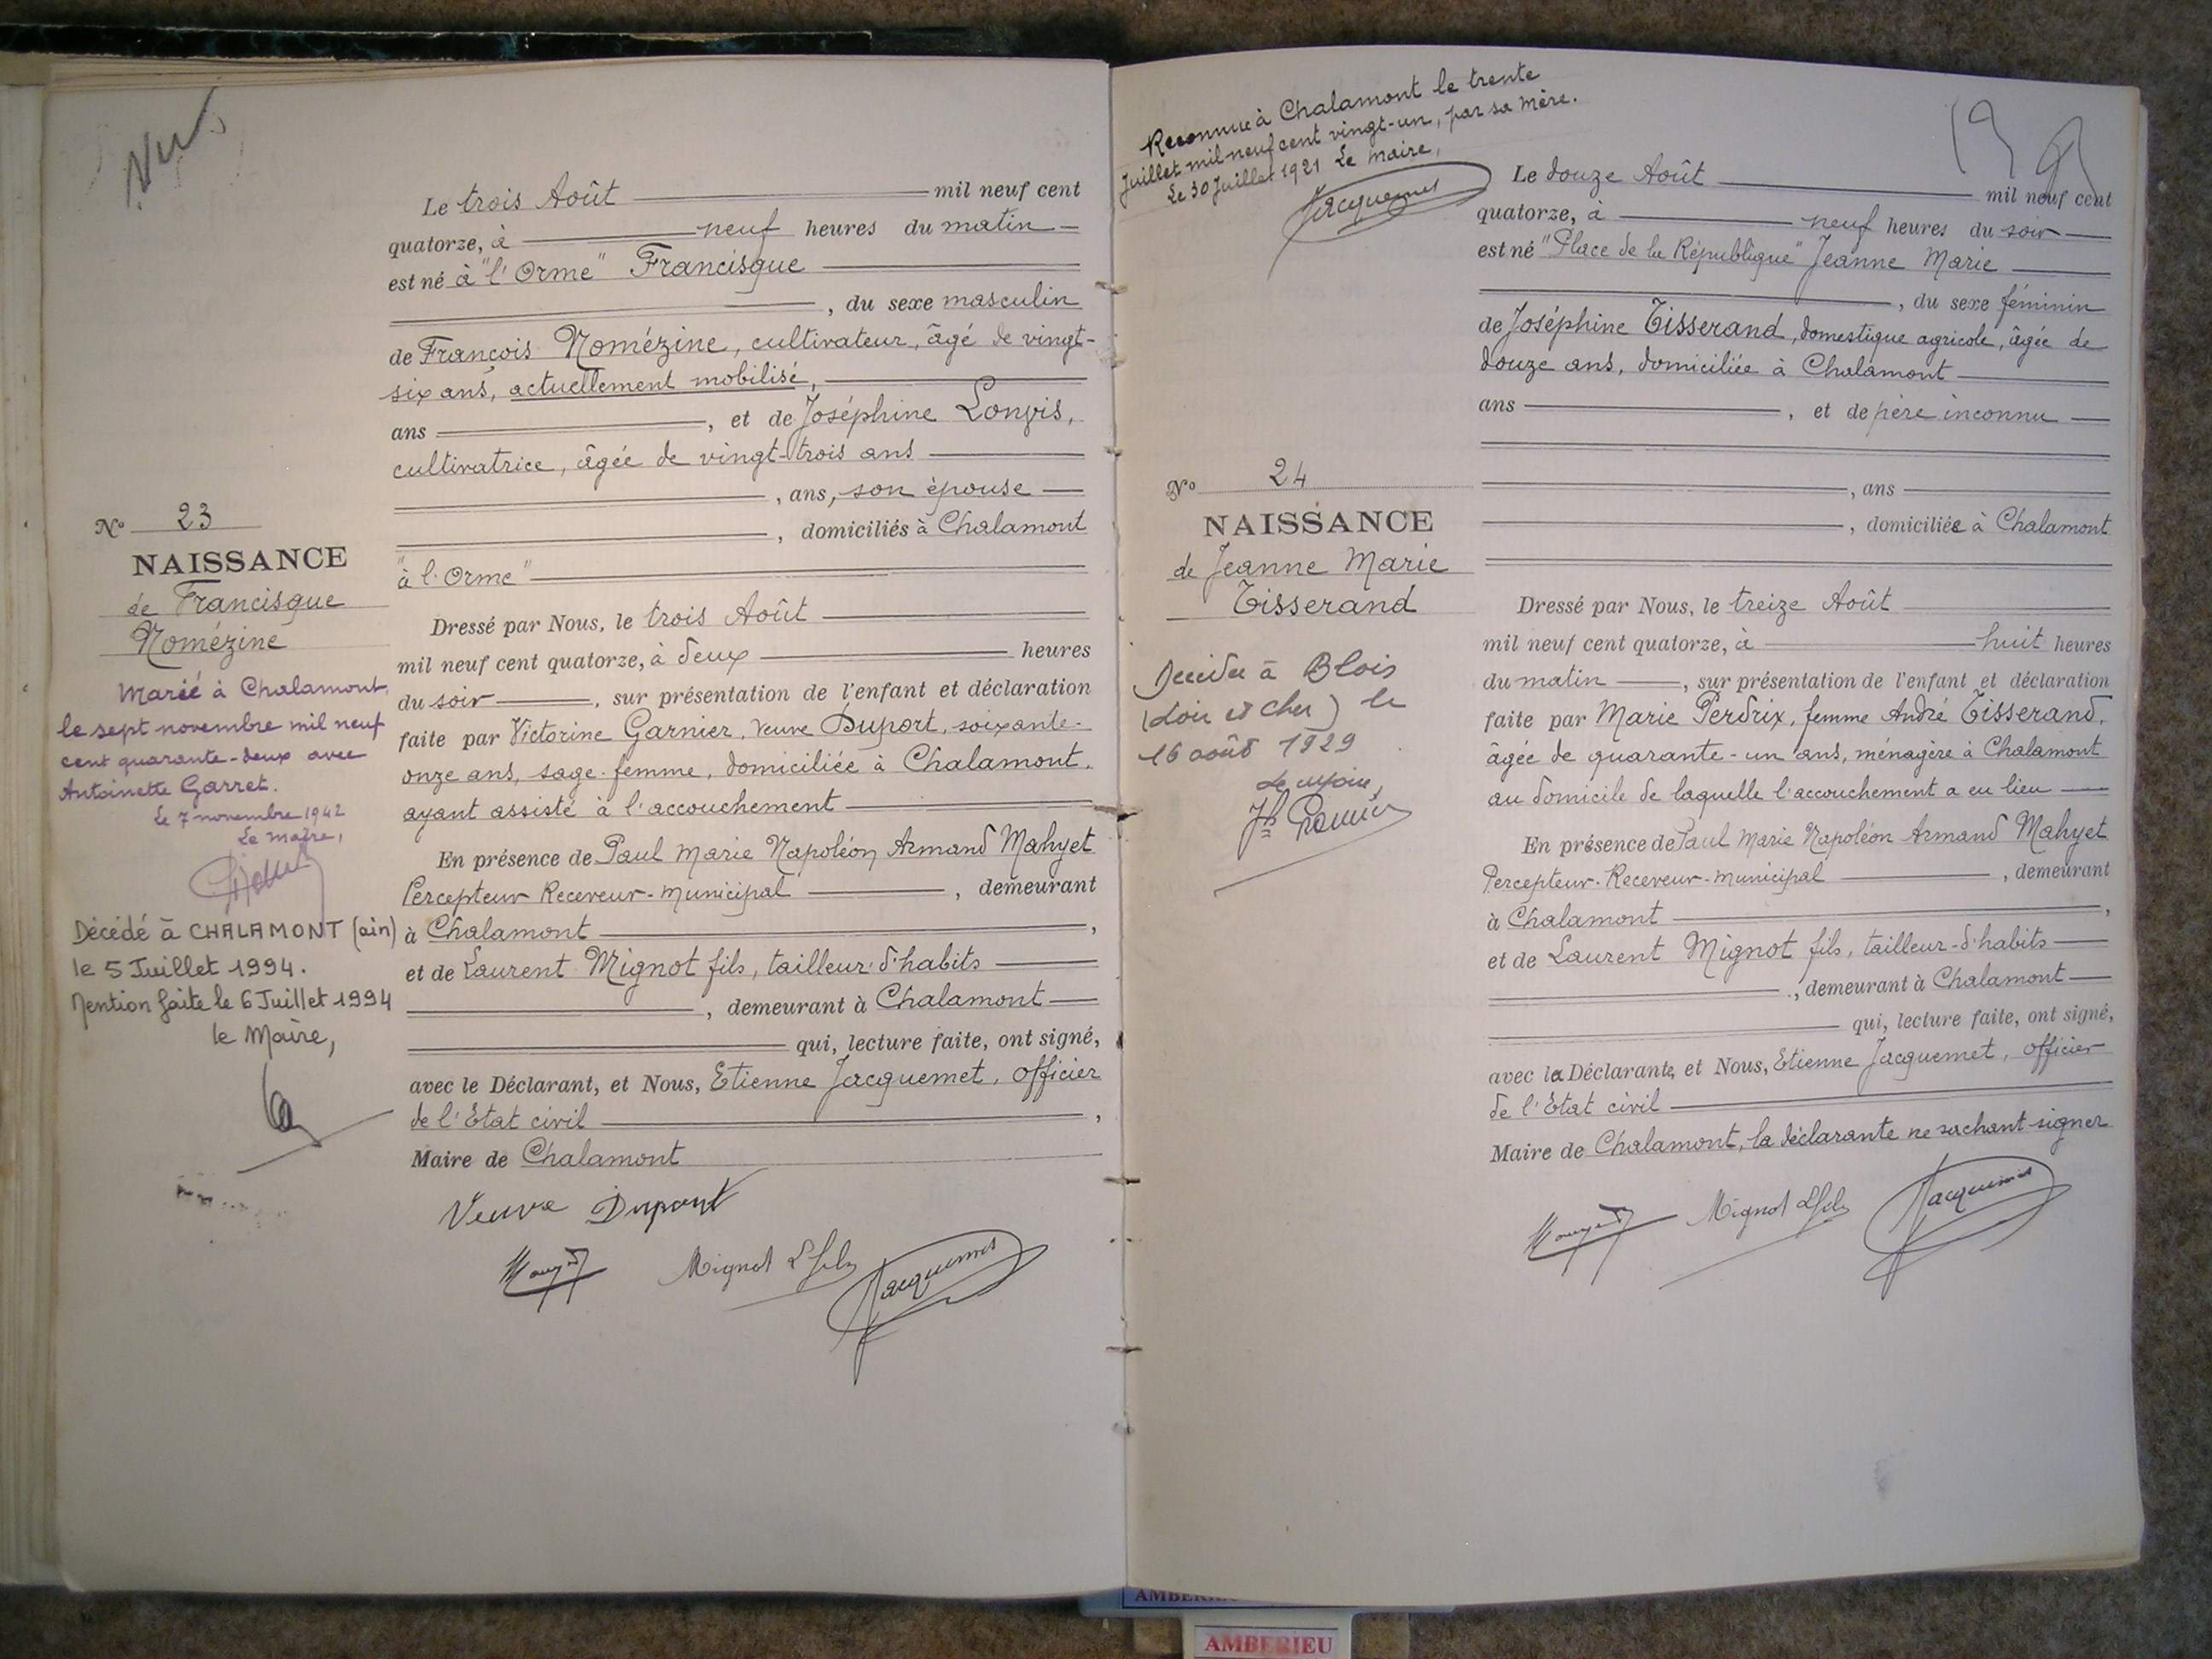 Le trois Août mil neuf cent
quatorze, à neuf heures du matin
est né à "l'Orme" Francisque
, du sexe masculin
de François Nomézine, cultivateur, âgé de vingt-
six ans, actuellement mobilisé,
ans , et de Joséphine Lonvis,
cultivatrice, âgée de vingt-trois ans
, ans, son épouse
, domiciliés à Chalamont
"à l'Orme"
Dressé par Nous, le trois Août
mil neuf cent quatorze, à deux heures
du soir , sur présentation de l'enfant et déclaration
faite par Victorine Garnier, veuve Duport, soixante-
onze ans, sage-femme, domiciliée à Chalamont,
ayant assisté à l'accouchement
En présence de Paul Marie Napoléon Armand Mahyet
Percepteur Receveur-Municipal , demeurant
à Chalamont ,
et de Laurent Mignot fils, tailleur d'habits
, demeurant à Chalamont
qui, lecture faite, ont signé,
avec le Déclarant, et Nous, Etienne Jacquemet, officier
de l'Etat civil ,
Maire de Chalamont
Veuve Duport
Mignot L fils Jacquemet
No 23
NAISSANCE
de Francisque
Nomézine
Marié à Chalamont,
le sept novembre mil neuf
cent quarante-deux avec
Antoinette Garret.
Le 7 novembre 1942
Le maire,
Décédé à CHALAMONT (ain)
le 5 Juillet 1994.
Mention faite le 6 Juillet 1994
le Maire,
Reconnue à Chalamont le trente
Juillet mil neuf cent vingt-un, par sa mère.
Le 30 Juillet 1921 Le Maire,
Jacquemet
19
Le douze Août mil neuf cent
quatorze, à neuf heures du soir
est né "Place de la République" Jeanne Marie
, du sexe féminin
de Joséphine Tisserand, domestique agricole, âgée de
douze ans, domiciliée à Chalamont
ans , et de père inconnu
, ans
, domiciliée à Chalamont
No 24
NAISSANCE
de Jeanne Marie
Tisserand
Décédée à Blois
(Loir et Cher) le
16 août 1929
Le maire,
Dressé par Nous, le treize Août
mil neuf cent quatorze, à huit heures
du matin , sur présentation de l'enfant et déclaration
faite par Marie Perdrix, femme André Tisserand,
âgée de quarante-un ans, ménagère à Chalamont
au domicile de laquelle l'accouchement a eu lieu
En présence de Paul Marie Napoléon Armand Mahyet
Percepteur-Receveur-Municipal , demeurant
à Chalamont ,
et de Laurent Mignot fils, tailleur-d'habits
, demeurant à Chalamont
qui, lecture faite, ont signé,
avec la Déclarante, et Nous, Etienne Jacquemet, officier
de l'Etat civil
Maire de Chalamont, la déclarante ne sachant signer
Mignot L fils Jacquemet
AMBERIEU